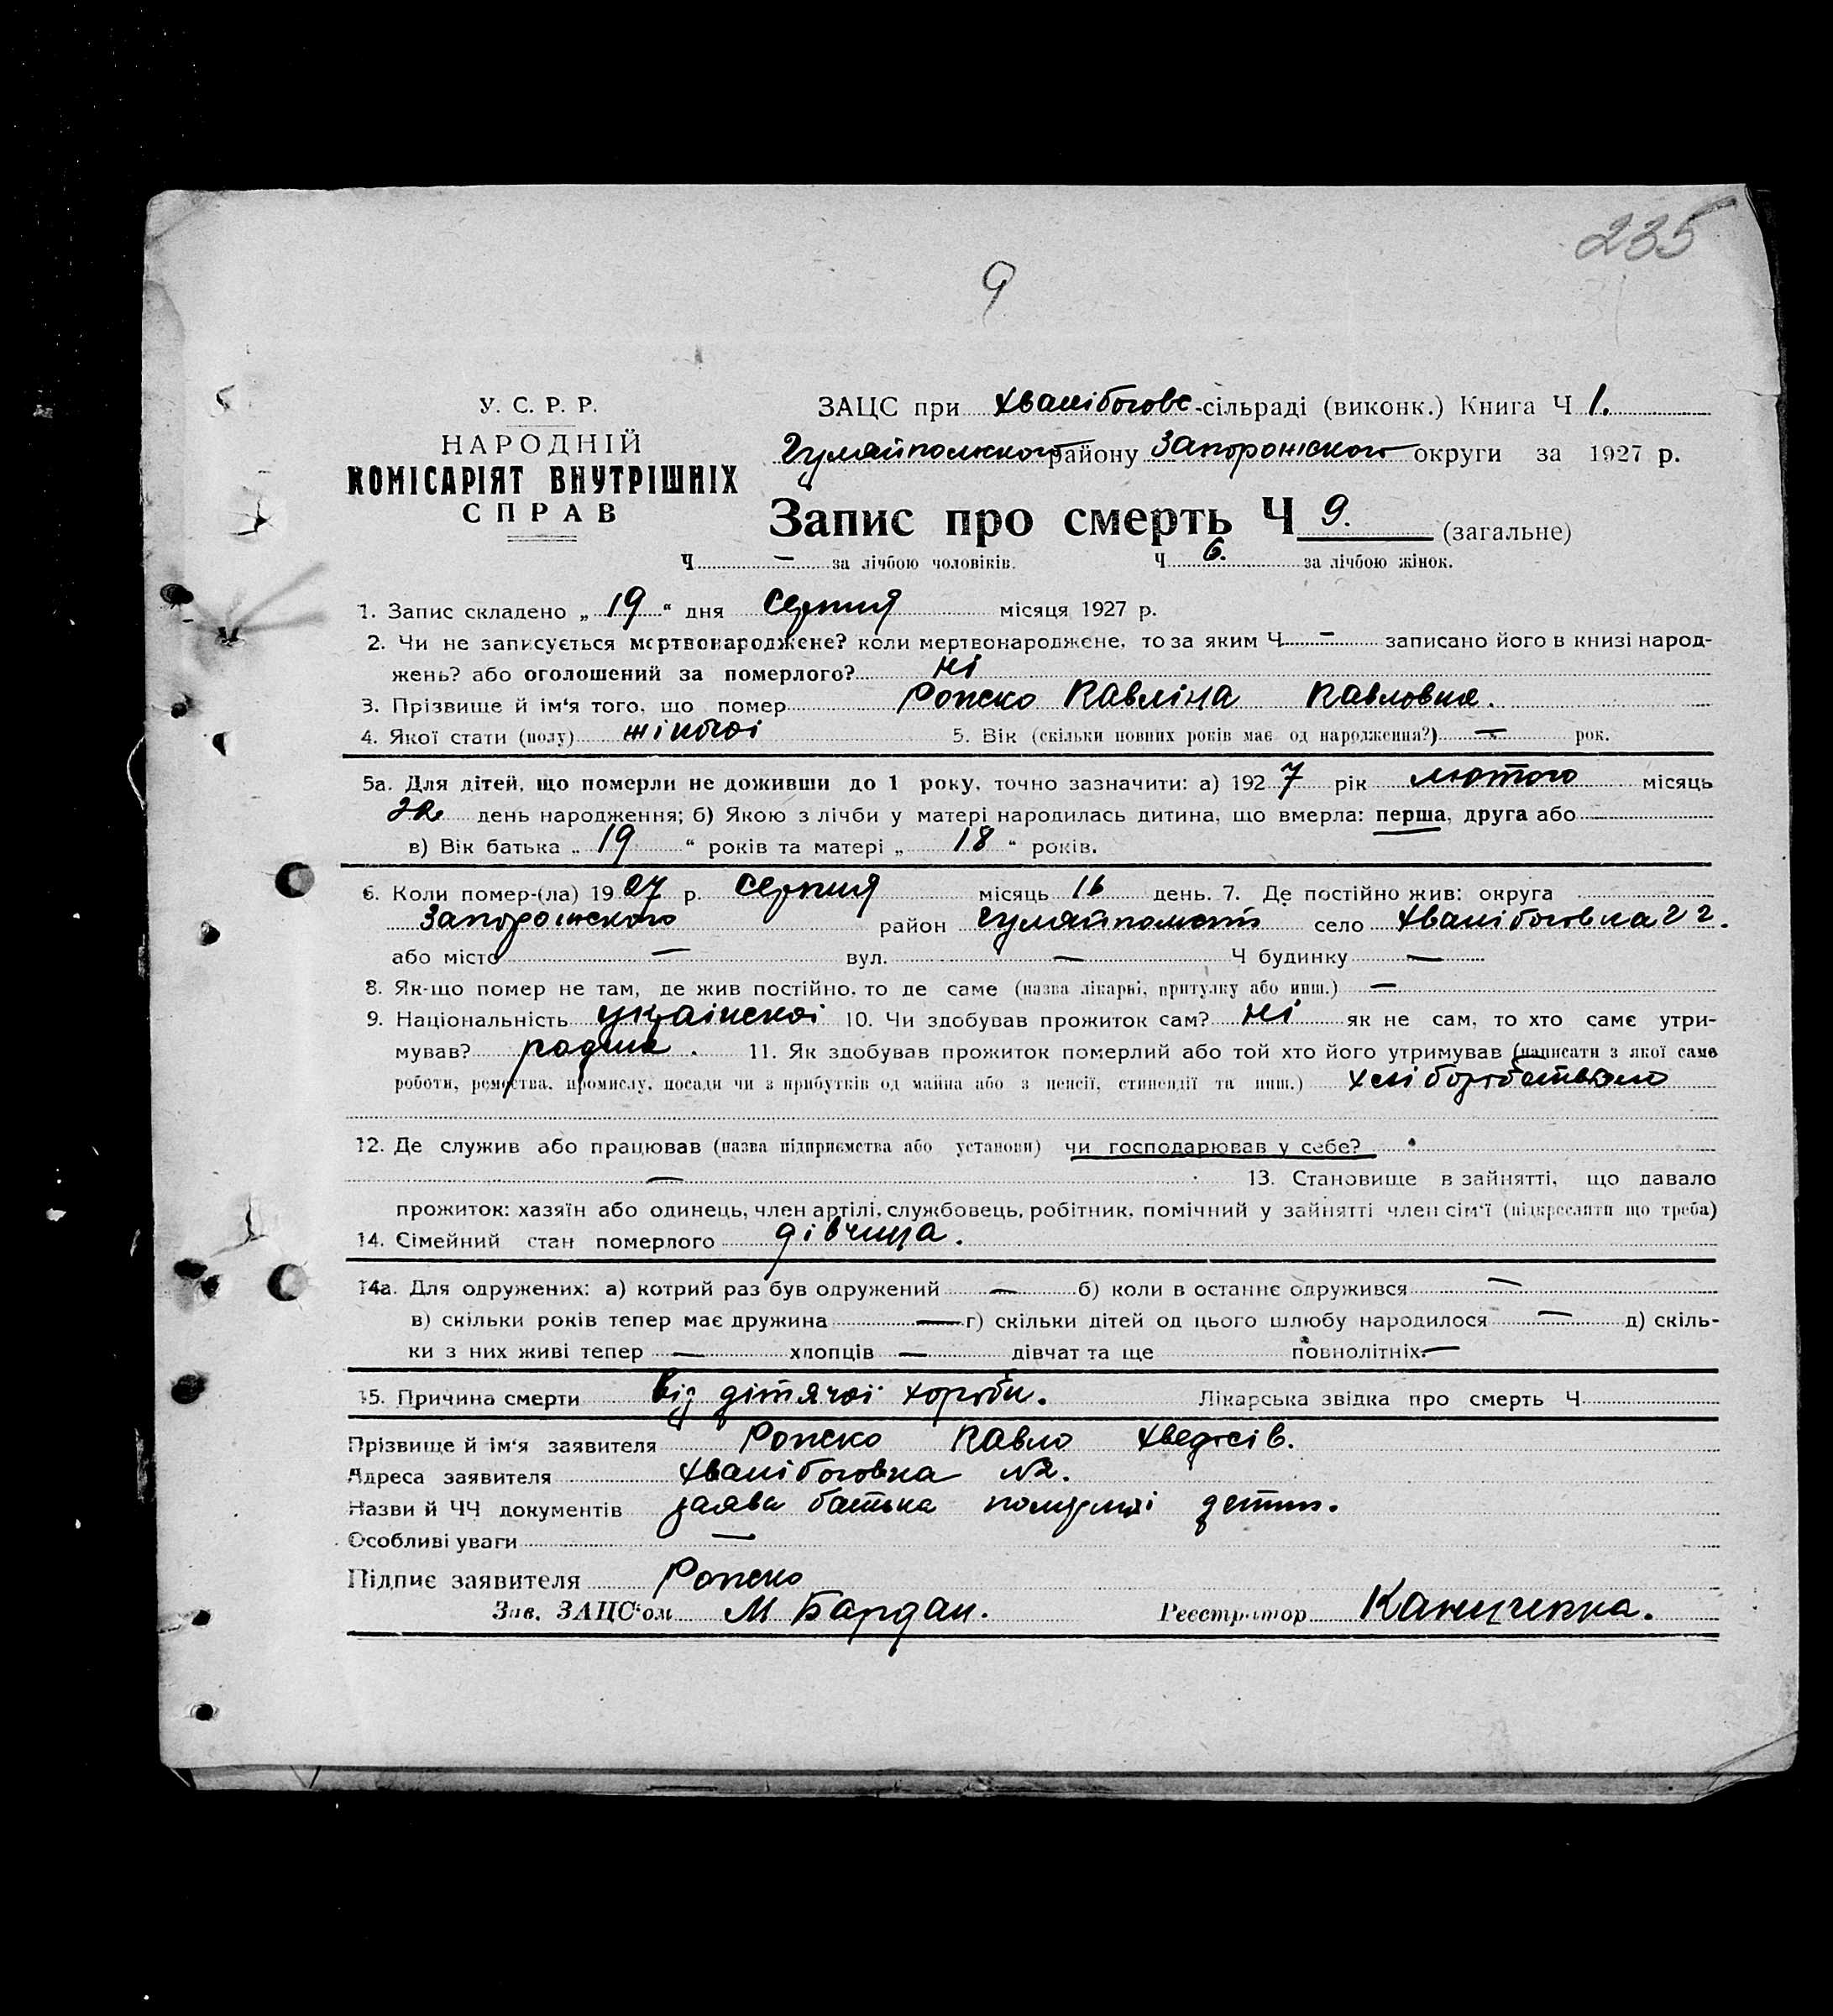 235
9
У. С. Р. Р.
НАРОДНІЙ
КОМІСАРІЯТ ВНУТРІШНІХ
СПРАВ
ЗАЦС при Хвалібогове-сільраді (виконк.) Книга Ч 1.
Гуляйпольского району Запорожского округи за 1927 р.
Запис про смерть Ч 9. (загальне)
Ч — за лічбою чоловіків. Ч 6. за лічбою жінок.
1. Запис складено „ 19 “ дня серпня місяця 1927 р.
2. Чи не записується мертвонароджене? коли мертвонароджене, то за яким Ч — записано його в книзі народ-
жень? або оголошений за померлого? ні
3. Прізвище й ім‘я того, що помер Павліна Павловна.
4. Якої стати (полу) жіночоі 5. Вік (скільки повних років має од народження?) — рок.
5а. Для дітей, що померли не доживши до 1 року, точно зазначити: а) 192 7 рік лютого місяць
22 день народження; б) Якою з лічби у матері народилась дитина, що вмерла: перша, друга або —
в) Вік батька „ 19 “ років та матері „ 18 “ років.
6. Коли помер-(ла) 19 27 р. серпня місяць 16 день. 7. Де постійно жив: округа
Запорожского район село Хвалібоговка
або місто — вул. — Ч будинку —
8. Як-що помер не там, де жив постійно, то де саме (назва лікарні, притулку або инш.) —
9. Національність украінскоі 10. Чи здобував прожиток сам? ні як не сам, то хто саме утри-
мував? родина. 11. Як здобував прожиток померлий або той хто його утримував (написати з якої саме
роботи, ремества, промислу, посади чи з прибутків од майна або з пенсії, стипендії та инш.) хліборобством
12. Де служив або працював (назва підприємства або установи) чи господарював у себе?
— 13. Становище в зайнятті, що давало
прожиток: хазяїн або одинець, член артілі, службовець, робітник, помічний у зайнятті член сім‘ї (підкреслити що треба)
14. Сімейний стан померлого дівчина.
14а. Для одружених: а) котрий раз був одружений — б) коли в останнє одружився —
в) скільки років тепер має дружина — г) скільки дітей од цього шлюбу народилося — д) скіль-
ки з них живі тепер — хлопців — дівчат та ще повнолітніх. —
15. Причина смерти від дітячоі хороби. Лікарська звідка про смерть Ч
Прізвище й ім‘я заявителя Павло Хведосів.
Адреса заявителя Хвалібоговка №2.
Назви й ЧЧ документів заява батька
Особливі уваги —
Підпис заявителя
Зав. ЗАЦС‘ом М Бардан. Реєстратор